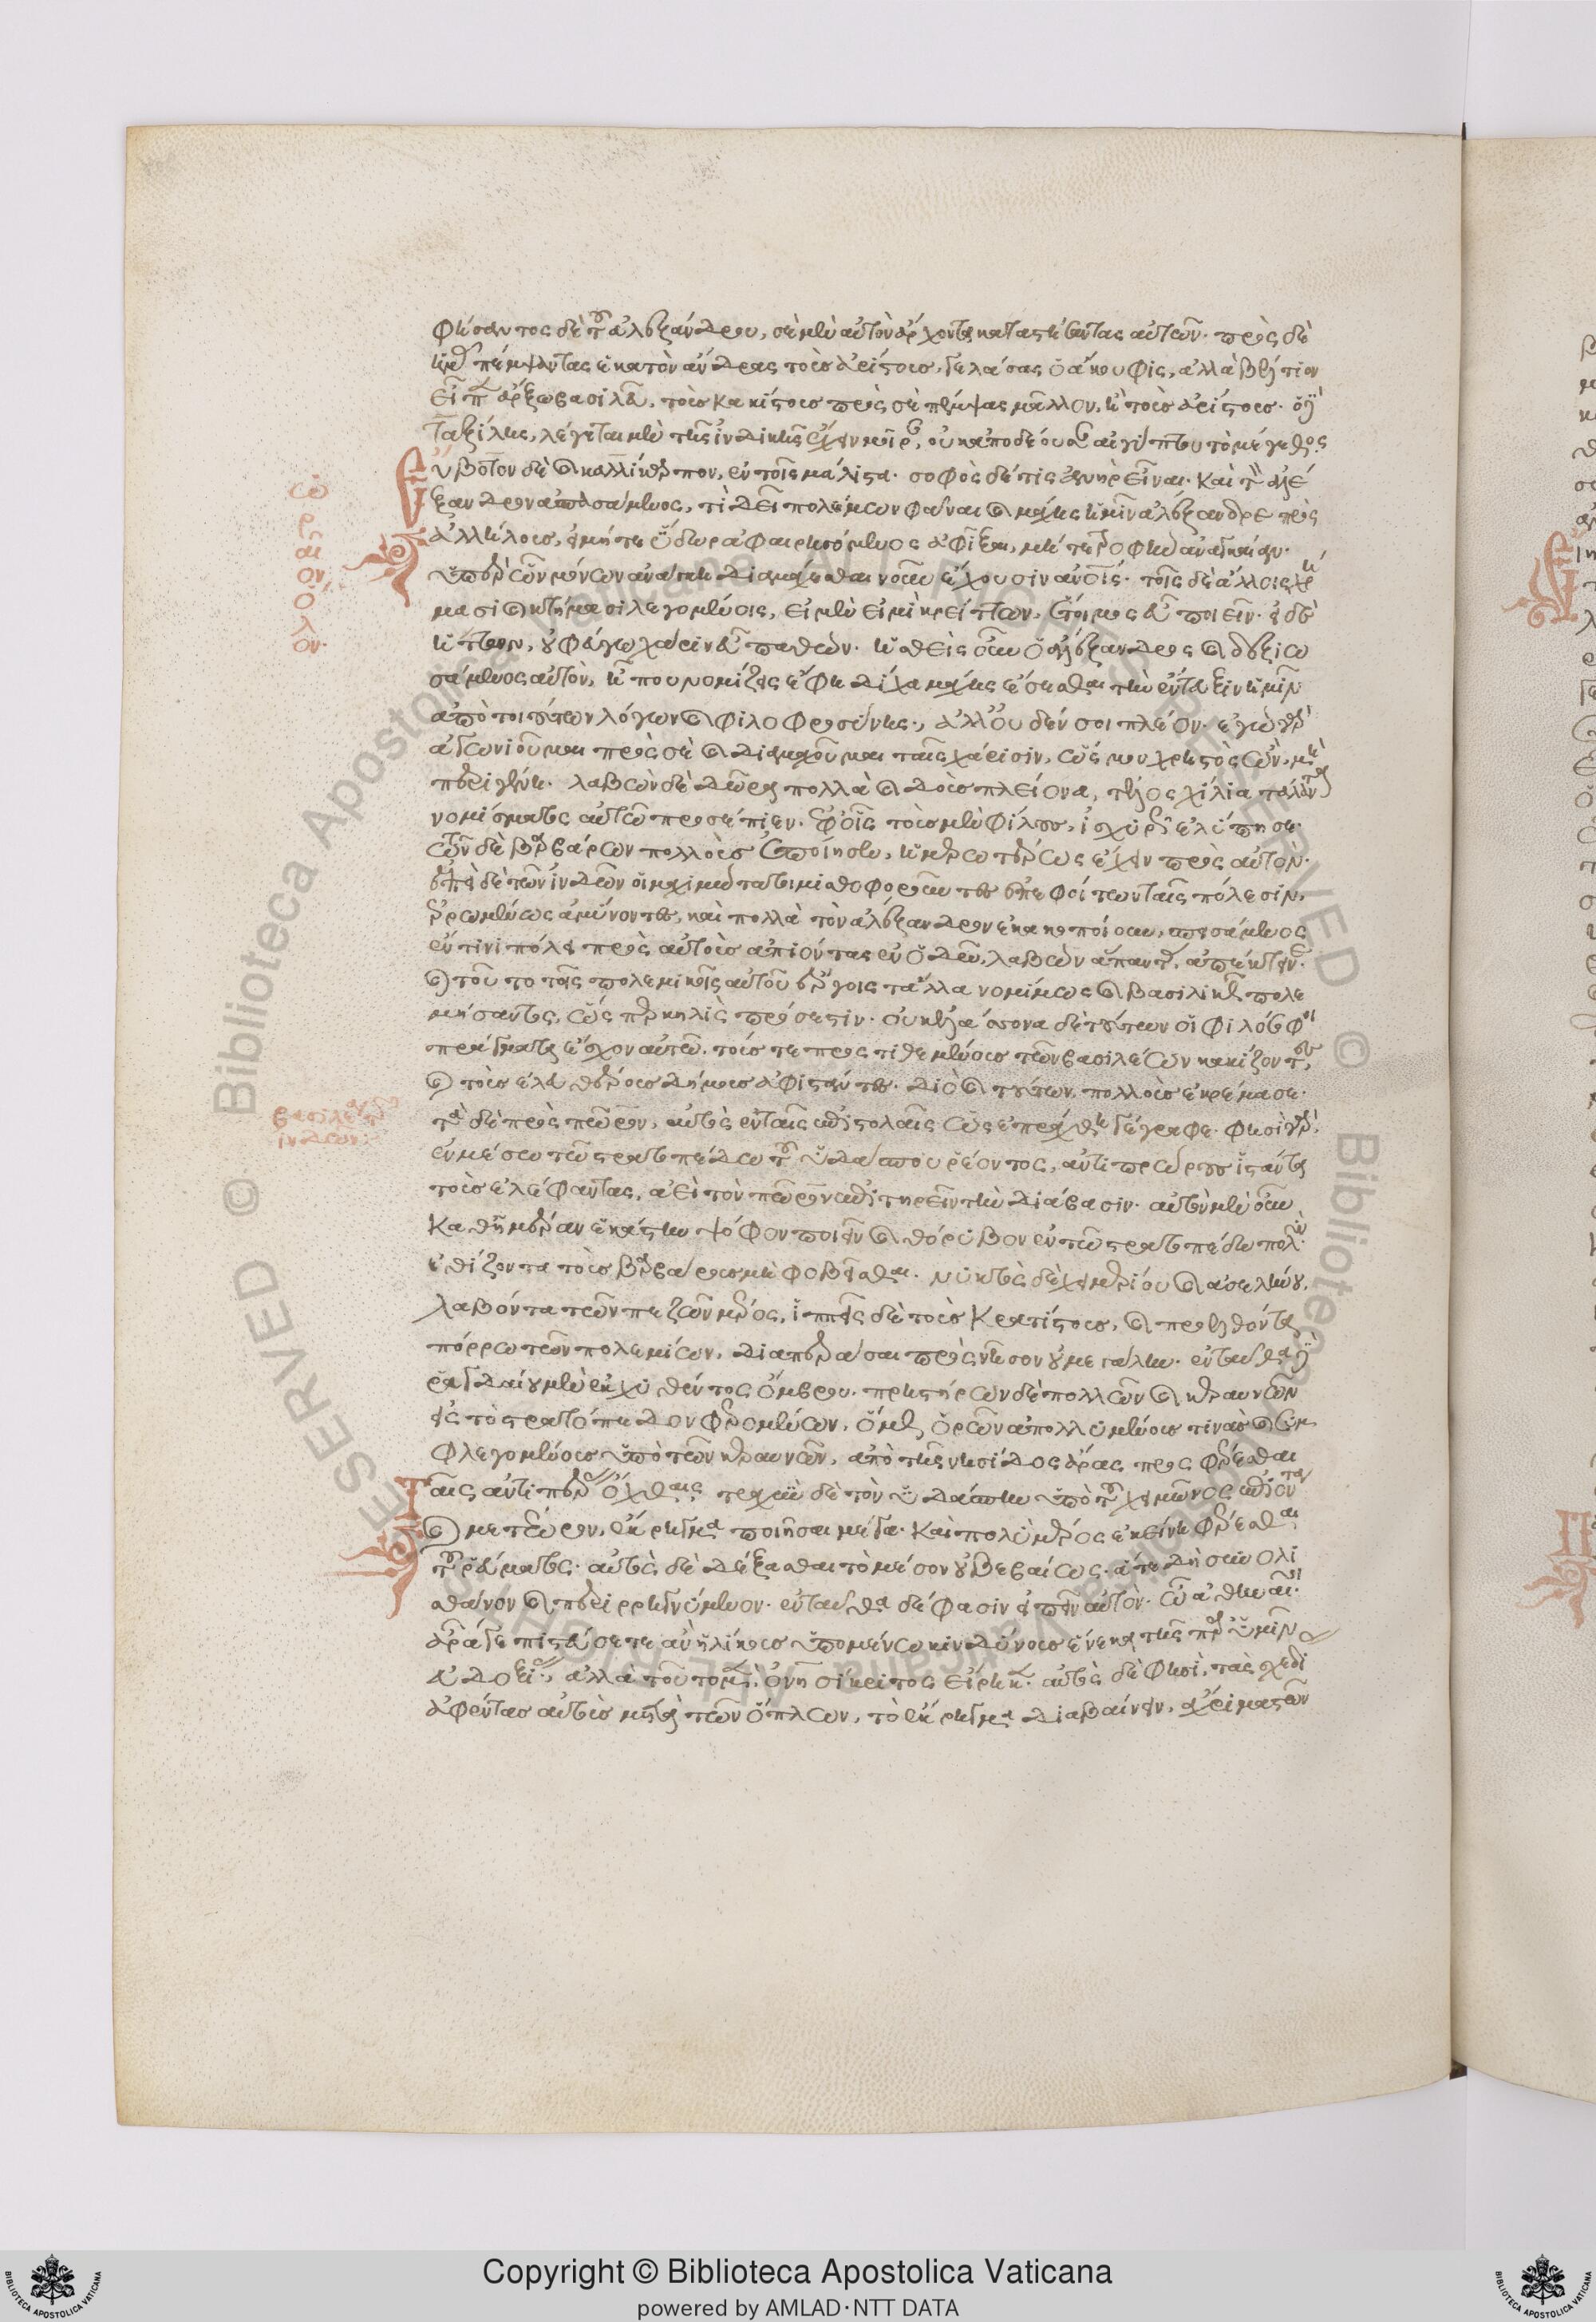 φήσαντος δὲ τοῦ ἀλεξάνδρου, σὲ μὲν αὐτὸν ἄρχοντα καταστήσαντας αὐτῶν· πρὸς δὲ
ἡμᾶς πέμψαντας ἑκατὸν ἄνδρας τοὺς ἀρίστους, γελάσας ὁ ἄκουφις, ἀλλὰ βέλτιον
εἶπεν ἄρξω βασιλεῦ, τοὺς κακίστους πρὸς σὲ πέμψας μᾶλλον, ἢ τοὺς ἀρίστους· ὁ δὲ
ταξίλης, λέγεται μὲν τῆς ἰνδικῆς ἔχειν μοῖραν, οὐκ ἀποδέουσαν αἰγύπτου τὸ μέγεθος
εὔβοτον δὲ καὶ καλλίκαρπον, ἐν τοῖς μάλιστα· σοφὸς δέ τις ἀνὴρ εἶναι· καὶ τὸν ἀλέ
ξανδρον ἀσπασάμενος, τί δεῖ πολέμων φάναι καὶ μάχης ἡμῖν ἀλέξανδρε πρὸς
ἀλλήλους, εἰ μήτε ὕδωρ ἀφαιρησόμενος ἀφῖξαι, μήτε τροφὴν ἀναγκαίαν·
ὑπὲρ ὧν μόνων ἀνάγκη διαμάχεσθαι νοῦν ἔχουσιν ἀνθρώποις· τοῖς δὲ ἄλλοις χρή
μασι καὶ κτήμασι λεγομένοις, εἰ μέν εἰμι κρείττων, ἕτοιμος εὖ ποιεῖν· εἰ δὲ
ἥττων, οὐ φεύγω χάριν εὖ παθών· ἡσθεὶς οὖν ὁ ἀλέξανδρος καὶ δεξιω
σάμενος αὐτὸν, ἦ που νομίζεις ἔφη δίχα μάχης ἔσεσθαι τὴν ἔντευξιν ἡμῖν
ἀπὸ τοιούτων λόγων καὶ φιλοφροσύνης., ἀλλ' οὐδέν σοι πλέον· ἐγὼ γὰρ
ἀγωνιοῦμαι πρὸς σὲ καὶ διαμαχοῦμαι ταῖς χάρισιν, ὥς μου χρηστὸς ὢν, μὴ
περιγένῃ· λαβὼν δὲ δῶρα πολλὰ καὶ δοὺς πλείονα, τέλος χίλια τάλαντα
νομίσματος αὐτῷ προσέπιεν· ἐφ' οἷς τοὺς μὲν φίλους, ἰσχυρῶς ἐλύπησε·
τῶν δὲ βαρβάρων πολλοὺς ἐποίησεν, ἡμερωτέρως ἔχειν πρὸς αὐτόν·
ἐπεὶ δὲ τῶν ἰνδῶν οἱ μαχιμώτατοι μισθοφοροῦντες ἐπεφοίτων ταῖς πόλεσιν,
ἐρρωμένως ἀμύνοντες, καὶ πολλὰ τὸν ἀλέξανδρον ἐκακοποίουν, σπεισάμενος
ἔν τινι πόλει πρὸς αὐτοὺς ἀπιόντας ἐν ὁδῷ, λαβὼν ἅπαντας, ἀπέκτεινεν·
καὶ τοῦτο τοῖς πολεμικοῖς αὐτοῦ ἔργοις τἄλλα νομίμως καὶ βασιλικῶς πολε
μήσαντος, ὥσπερ κηλὶς πρόσεστιν· οὐκ ἐλάσσονα δὲ τούτων οἱ φιλόσοφοι
πράγματα ἔσχον αὐτῷ· τούς τε προστιθεμένους τῶν βασιλέων κακίζοντες,
καὶ τοὺς ἐλευθέρους δήμους ἀφιστάντες· διὸ καὶ τούτων πολλοὺς ἐκρέμασε·
τὰ δὲ πρὸς πῶρον, αὐτὸς ἐν ταῖς ἐπιστολαῖς ὡς ἐπράχθη γέγραφε· φησὶ γὰρ,
ἐν μέσῳ τῶν στρατοπέδων τοῦ ὑδάσπου ῥέοντος, ἀντιπρώρους ἱστάντα
τοὺς ἐλέφαντας, ἀεὶ τὸν πῶρον ἐπιτηρεῖν τὴν διάβασιν· αὐτὸν μὲν οὖν
καθ' ἡμέραν ἑκάστην ψόφον ποιεῖν καὶ θόρυβον ἐν τῷ στρατοπέδῳ πολὺν·
ἐθίζοντα τοὺς βαρβάρους μὴ φοβεῖσθαι· νυκτὸς δὲ χειμερίου καὶ ἀσελήνου,
λαβόντα τῶν πεζῶν μέρος, ἱππεῖς δὲ τοὺς κρατίστους, καὶ προελθόντα
πόρρω τῶν πολεμίων, διαπερᾶσαι πρὸς νῆσον οὐ μεγάλην· ἐνταῦθα δὲ
ῥαγδαίου μὲν ἐκχυθέντος ὄμβρου· πρηστήρων δὲ πολλῶν καὶ κεραυνῶν
εἰς τὸ στρατόπεδον φερομένων, ὅμως ὁρῶν ἀπολλυμένους τινὰς καὶ συμ
φλεγομένους ὑπὸ τῶν κεραυνῶν, ἀπὸ τῆς νησίδος ἄρας προσφέρεσθαι
ταῖς ἀντιπέραν ὄχθαις· τραχὺν δὲ τὸν ὑδάσπην ὑπὸ τοῦ χειμῶνος ἐπιόντα
καὶ μετέωρον, ἔκρηγμα ποιῆσαι μέγα· καὶ πολὺ μέρος ἐκείνῃ φέρεσθαι
τοῦ ῥεύματος· αὐτὸς δὲ δέξασθαι τὸ μέσον οὐ βεβαίως· ἅτε δὴ συνολι
σθαῖνον καὶ περιρρηγνύμενον· ἐνταῦθα δέ φασιν εἰπεῖν αὐτὸν· ὦ ἀθηναῖοι·
ἆρά γε πιστεύσετε ἂν ἡλίκους ὑπομένω κινδύνους ἕνεκα τῆς παρ' ὑμῖν
εὐδοξίας., ἀλλὰ τοῦτο μὲν, ὀνησίκριτος εἴρηκεν· αὐτὸς δέ φησι, τὰς σχεδί
ἀφέντας αὐτοὺς μετὰ τῶν ὅπλων, τὸ ἔκρηγμα διαβαίνειν, ἄχρι μαστῶν
ὡραῖον ὅλον·
βασιλεὺς ἰνδῶν·
Copyright © Biblioteca Apostolica Vaticana
powered by AMLAD·NTT DATA